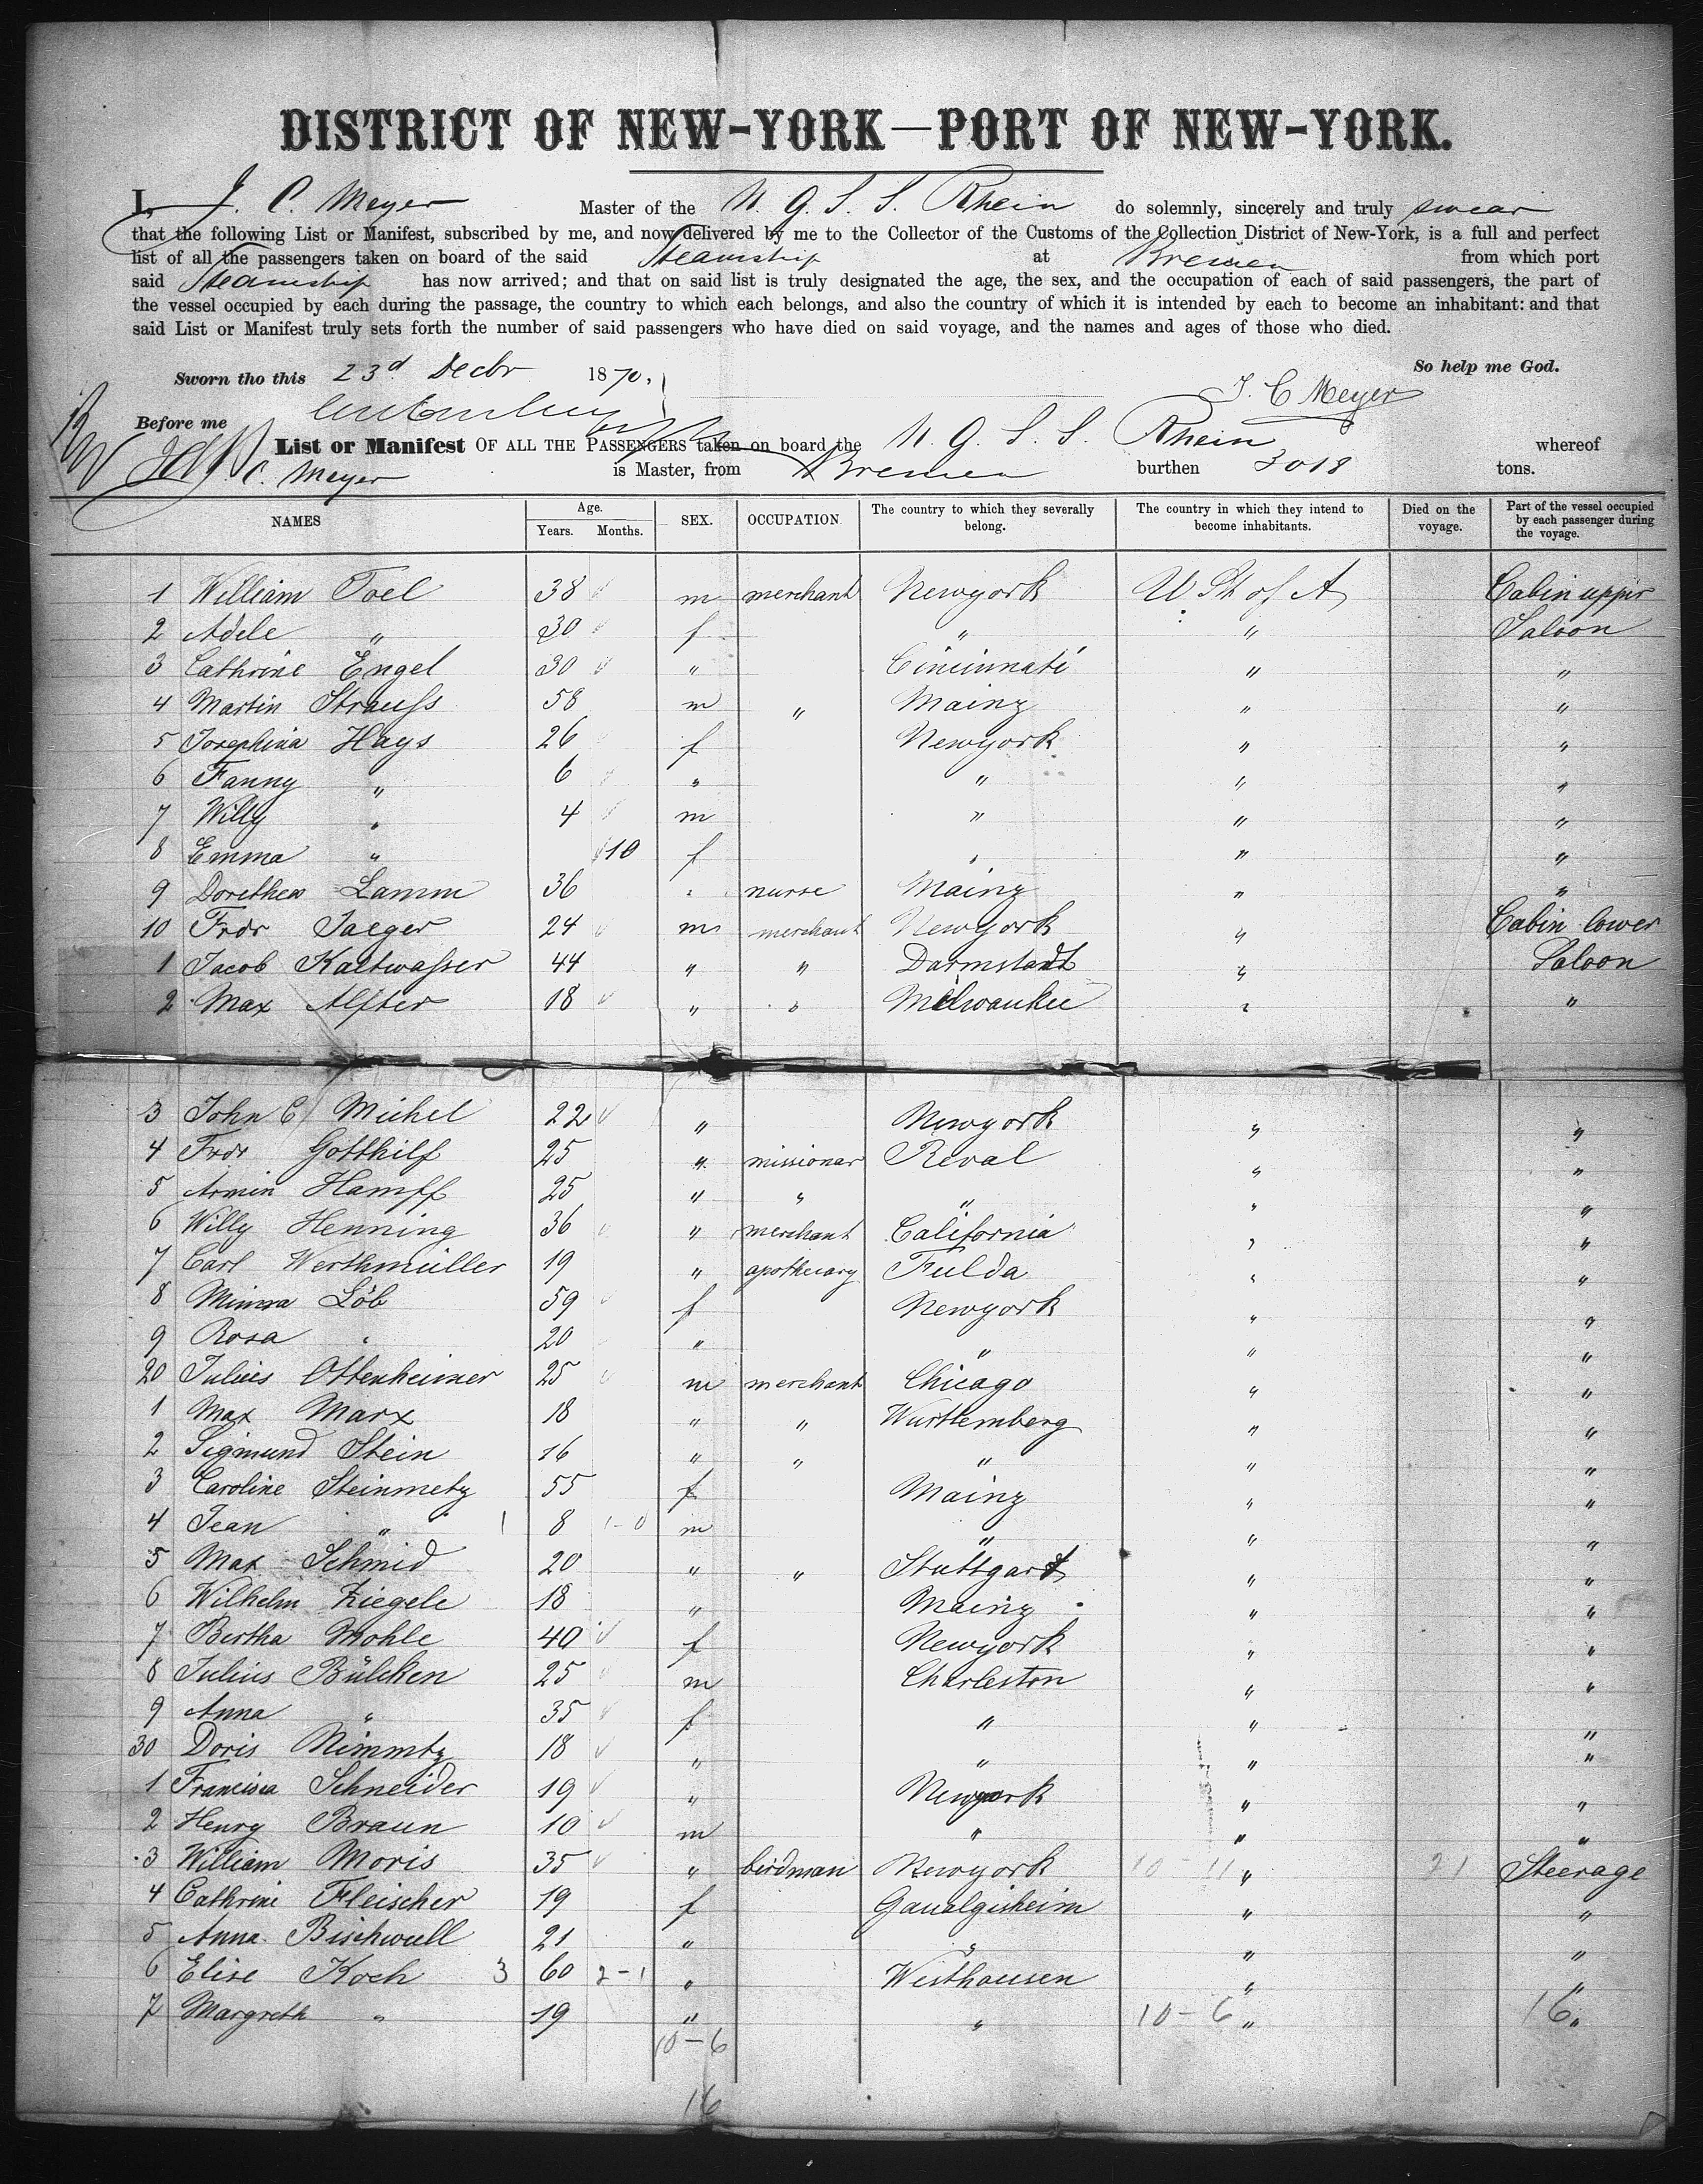 DISTRICT OF NEW-YORK—PORT OF NEW-YORK.
I, J. C. Meyer Master of the N. G. S. S. Rhein do solemnly, sincerely and truly swear
that the following List or Manifest, subscribed by me, and now delivered by me to the Collector of the Customs of the Collection District of New-York, is a full and perfect
list of all the passengers taken on board of the said Steamship at Bremen from which port
said Steamship has now arrived; and that on said list is truly designated the age, the sex, and the occupation of each of said passengers, the part of
the vessel occupied by each during the passage, the country to which each belongs, and also the country of which it is intended by each to become an inhabitant: and that
said List or Manifest truly sets forth the number of said passengers who have died on said voyage, and the names and ages of those who died.
So help me God.
Sworn tho this 23d Decbr 1870.
J. C Meyer
Before me
List or Manifest OF ALL THE PASSENGERS taken on board the N. G. S. S. Rhein whereof
J. C. Meyer is Master, from Bremen burthen 3018 tons.
NAMES Age. Years. Months. SEX. OCCUPATION. The country to which they severally belong. The country in which they intend to become inhabitants. Died on the voyage. Part of the vessel occupied by each passenger during the voyage.
1 William Toel 38 m merchant Newyork U St of A Cabin upper
2 Adele " 30 f " " Saloon
3 Cathrine Engel 30 " Cincinnati " "
4 Martin Strauss 58 m " Mainz " "
5 Josephina Hays 26 f Newyork " "
6 Fanny " 6 " " " "
7 Willy " 4 m " " "
8 Emma " 10 f " " "
9 Dorethea Lamm 36 " nurse Mainz " "
10 Fror Jaeger 24 m merchant Newyork " Cabin lower
1 Jacob Kaltwasser 44 " " Darmstadt " Saloon
2 Max Alfter 18 " " Milwaukee " "
3 John C Michel 22 " Newyork " "
4 Fror Gotthilf 25 " missionar Reval " "
5 Armin Hampf 25 " " " " "
6 Willy Henning 36 " merchant California " "
7 Carl Werthmüller 19 " apothecary Fulda " "
8 Minna Löb 59 f Newyork " "
9 Rosa " 20 " " " "
20 Julius Ottenheimer 25 m merchant Chicago " "
1 Max Marx 18 " " Wurttemberg " "
2 Sigmund Stein 16 " " " " "
3 Caroline Steinmetz 55 f Mainz " "
4 Jean " 1 8 1-0 m " " "
5 Max Schmid 20 " " Stuttgart " "
6 Wilhelm Ziegele 18 " Mainz " "
7 Bertha Mohle 40 f Newyork " "
8 Julius Bülcken 25 m Charleston " "
9 Anna " 35 f " " "
30 Doris Nimmtz 18 " " " "
1 Francisca Schneider 19 " Newyork " "
2 Henry Braun 10 m " " "
3 William Moris 35 " birdman Newyork 10-11 " 21 Steerage
4 Cathrine Fleischer 19 f Gaualgisheim " "
5 Anna Bischwell 21 " " " "
6 Elise Koch 3 60 2-1 " Westhausen " "
7 Margreth " 19 " " 10-6 " 16 "
10-6
16